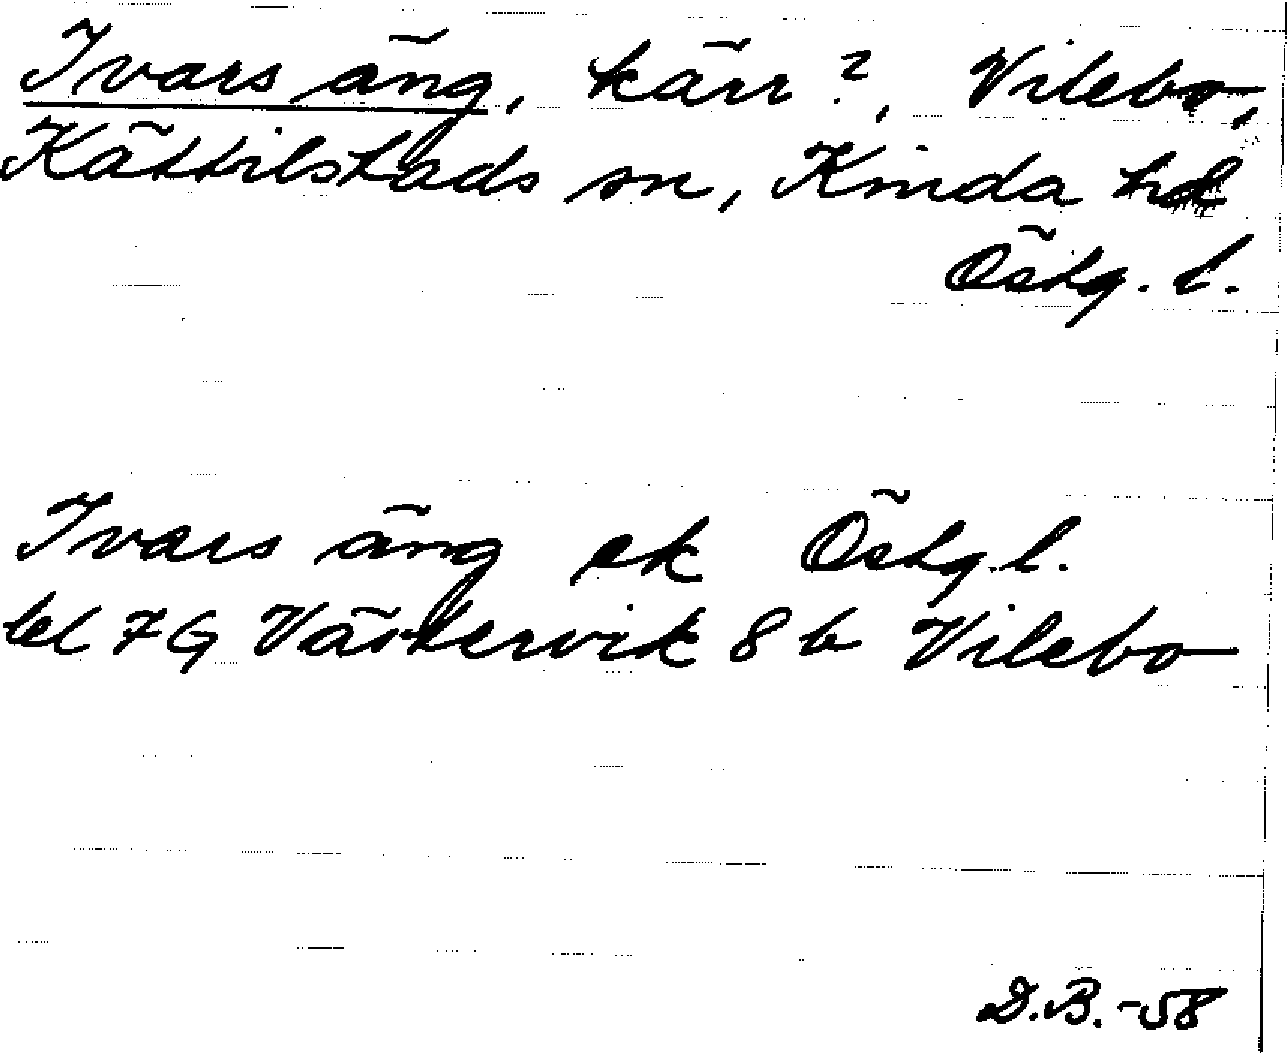 Ivars äng, kärr?, Vilebo,
Kättilstads sn, Kinda hd
Östg. l.
Ivars äng ek Östg.l.
bl 7G Västervik 8 b Vilebo
D.B.-58